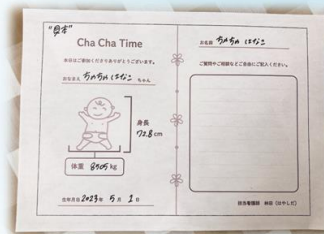 "見本"
Cha Cha Time
本日はご参加くださりありがとうございます。
お名まえ ちゃちゃ はなこ ちゃん
身長
72.8 cm
体重 8905 kg
生年月日 2023 年 5 月 1 日
お名前 ちゃちゃ はなこ
ご質問やご相談などご自由にご記入ください。
担当看護師 林田(はやしだ)